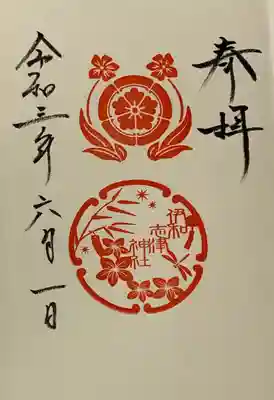 奉拝
伊和
志津
神社
令和三年六月一日